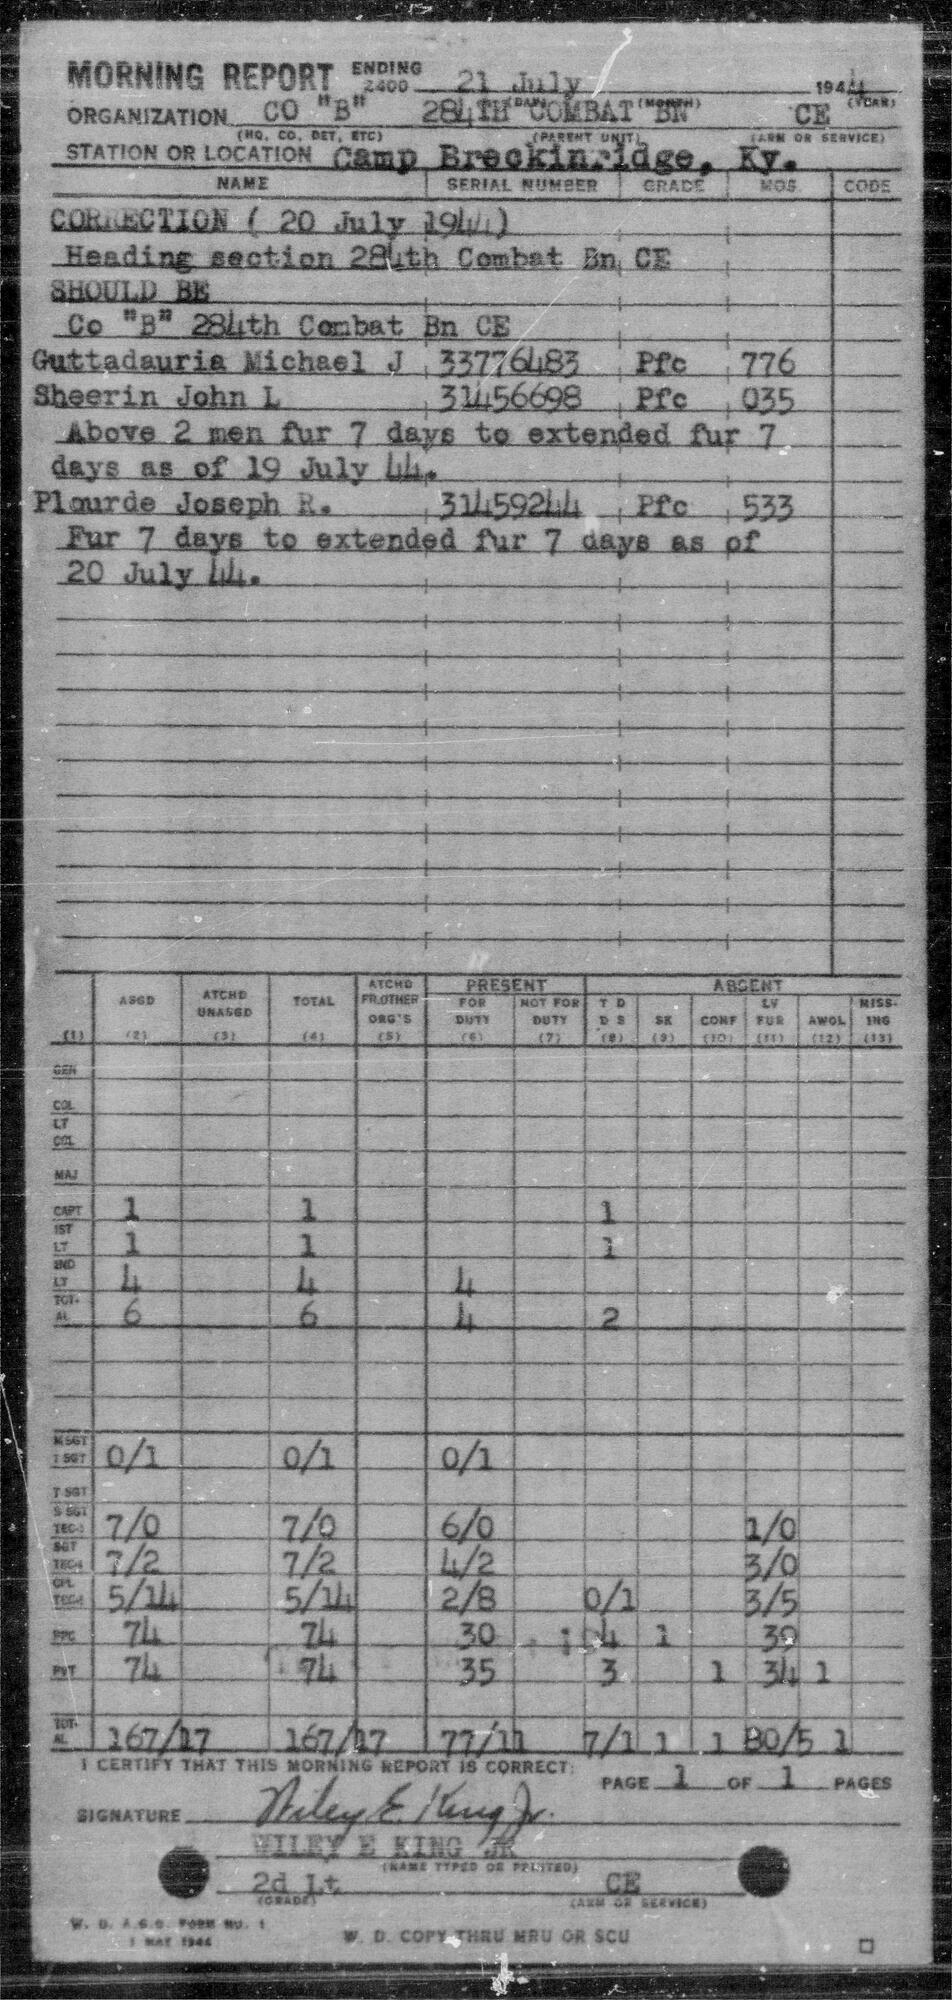 MORNING REPORT ENDING 2400 21 July 1944
(DAY) (MONTH) (YEAR)
ORGANIZATION CO "B" 284TH COMBAT BN CE
(HQ, CO, DET, ETC) (PARENT UNIT) (ARM OR SERVICE)
STATION OR LOCATION Camp Breckinridge, Ky.
NAME SERIAL NUMBER GRADE MOS CODE
CORRECTION ( 20 July 1944)
Heading section 284th Combat Bn CE
SHOULD BE
Co "B" 284th Combat Bn CE
Guttadauria Michael J 33776483 Pfc 776
Sheerin John L 31456698 Pfc 035
Above 2 men fur 7 days to extended fur 7
days as of 19 July 44.
Plourde Joseph R. 31459244 Pfc 533
Fur 7 days to extended fur 7 days as of
20 July 44.
PRESENT ABSENT
(1) ASGD (2) ATCHD UNASGD (3) TOTAL (4) ATCHD FR OTHER ORG'S (5) FOR DUTY (6) NOT FOR DUTY (7) T D D S (8) SK (9) CONF (10) LV FUR (11) AWOL (12) MISSING (13)
GEN
COL
LT COL
MAJ
CAPT 1 1 1
1ST LT 1 1 1
2ND LT 4 4 4
TOTAL 6 6 4 2
M SGT 1 SGT 0/1 0/1 0/1
T SGT
S SGT TEC-3 7/0 7/0 6/0 1/0
SGT TEC-4 7/2 7/2 4/2 3/0
CPL TEC-5 5/14 5/14 2/8 0/1 3/5
PFC 74 74 30 4 1 39
PVT 74 74 35 3 1 34 1
TOTAL 167/17 167/17 77/11 7/1 1 1 80/5 1
I CERTIFY THAT THIS MORNING REPORT IS CORRECT:
PAGE 1 OF 1 PAGES
SIGNATURE Wiley E. King Jr.
WILEY E KING JR
(NAME TYPED OR PRINTED)
2d Lt CE
(GRADE) (ARM OR SERVICE)
W. D. A.G.O. FORM NO. 1
1 MAY 1944
W. D. COPY THRU MRU OR SCU